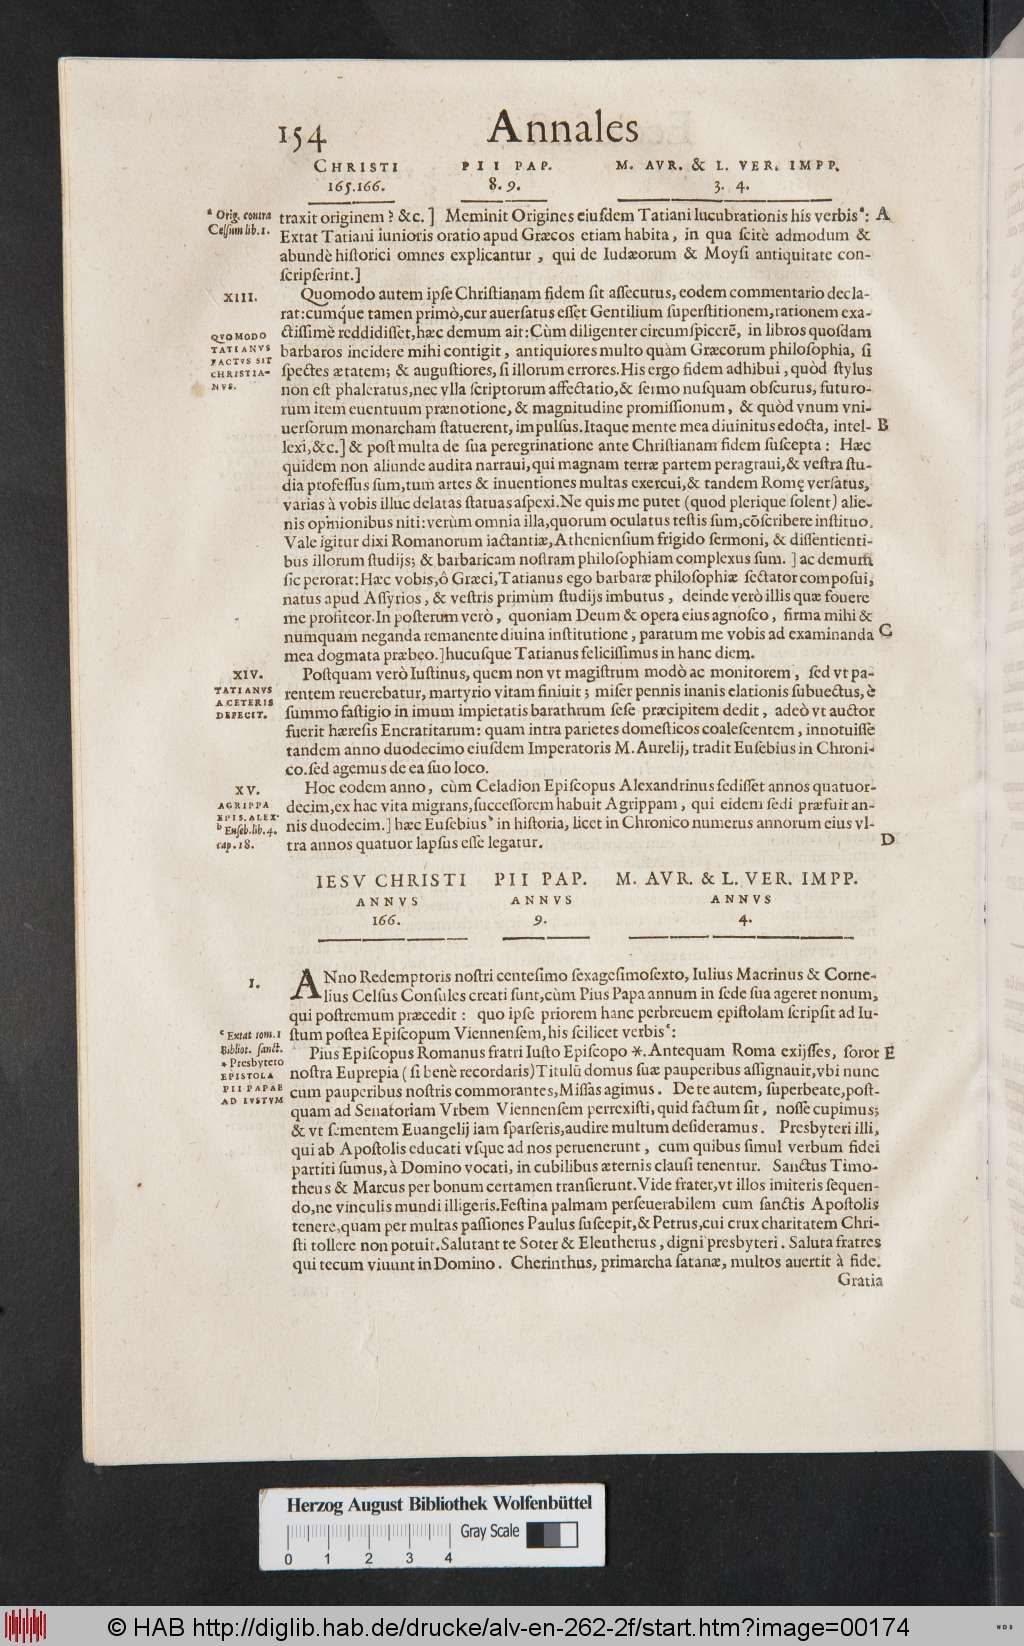 154 Annales
CHRISTI PII PAP. M. AVR. & L. VER. IMPP.
165.166. 8. 9. 3. 4.
ᵃ Orig. contra
Celſum lib. 1.
traxit originem? &c. ] Meminit Origines eiuſdem Tatiani lucubrationis his verbisᵃ: A
Extat Tatiani iunioris oratio apud Græcos etiam habita, in qua ſcitè admodum &
abundè hiſtorici omnes explicantur, qui de Iudæorum & Moyſi antiquitate con-
ſcripſerint.]
XIII.
Quomodo autem ipſe Chriſtianam fidem ſit aſſecutus, eodem commentario decla-
rat: cumq́ue tamen primò, cur auerſatus eſſet Gentilium ſuperſtitionem, rationem exa-
QVOMODO
TATIANVS
FACTVS SIT
CHRISTIA-
NVS.
ctiſſimè reddidiſſet, hæc demum ait: Cùm diligenter circumſpicerē, in libros quoſdam
barbaros incidere mihi contigit, antiquiores multo quàm Græcorum philoſophia, ſi
ſpectes ætatem; & auguſtiores, ſi illorum errores. His ergo fidem adhibui, quòd ſtylus
non eſt phaleratus, nec vlla ſcriptorum affectatio, & ſermo nuſquam obſcurus, futuro-
rum item euentuum prænotione, & magnitudine promiſſionum, & quòd vnum vni-
uerſorum monarcham ſtatuerent, impulſus. Itaque mente mea diuinitus edocta, intel- B
lexi, &c.] & poſt multa de ſua peregrinatione ante Chriſtianam fidem ſuſcepta: Hæc
quidem non aliunde audita narraui, qui magnam terræ partem peragraui, & veſtra ſtu-
dia profeſſus ſum, tum artes & inuentiones multas exercui, & tandem Romę verſatus,
varias à vobis illuc delatas ſtatuas aſpexi. Ne quis me putet (quod plerique ſolent) alie-
nis opinionibus niti: verùm omnia illa, quorum oculatus teſtis ſum, cōſcribere inſtituo.
Vale igitur dixi Romanorum iactantiæ, Athenienſium frigido ſermoni, & diſſentienti-
bus illorum ſtudijs; & barbaricam noſtram philoſophiam complexus ſum. ] ac demum
ſic perorat: Hæc vobis, ô Græci, Tatianus ego barbaræ philoſophiæ ſectator compoſui,
natus apud Aſſyrios, & veſtris primùm ſtudijs imbutus, deinde verò illis quæ fouere
me profiteor. In poſterum verò, quoniam Deum & opera eius agnoſco, firma mihi &
numquam neganda remanente diuina inſtitutione, paratum me vobis ad examinanda C
mea dogmata præbeo.] hucuſque Tatianus feliciſſimus in hanc diem.
XIV.
TATIANVS
A CETERIS
DEFECIT.
Poſtquam verò Iuſtinus, quem non vt magiſtrum modò ac monitorem, ſed vt pa-
rentem reuerebatur, martyrio vitam finiuit; miſer pennis inanis elationis ſubuectus, è
ſummo faſtigio in imum impietatis barathrum ſeſe præcipitem dedit, adeò vt auctor
fuerit hæreſis Encratitarum: quam intra parietes domeſticos coaleſcentem, innotuiſſe
tandem anno duodecimo eiuſdem Imperatoris M. Aurelij, tradit Euſebius in Chroni-
co. ſed agemus de ea ſuo loco.
XV.
AGRIPPA
EPIS. ALEX.
ᵇ Euſeb. lib. 4.
cap. 18.
Hoc eodem anno, cùm Celadion Epiſcopus Alexandrinus ſediſſet annos quatuor-
decim, ex hac vita migrans, ſucceſſorem habuit Agrippam, qui eidem ſedi præfuit an-
nis duodecim.] hæc Euſebiusᵇ in hiſtoria, licet in Chronico numerus annorum eius vl-
tra annos quatuor lapſus eſſe legatur. D
IESV CHRISTI PII PAP. M. AVR. & L. VER. IMPP.
ANNVS ANNVS ANNVS
166. 9. 4.
I.
ANno Redemptoris noſtri centeſimo ſexageſimoſexto, Iulius Macrinus & Corne-
lius Celſus Conſules creati ſunt, cùm Pius Papa annum in ſede ſua ageret nonum,
qui poſtremum præcedit: quo ipſe priorem hanc perbreuem epiſtolam ſcripſit ad Iu-
ſtum poſtea Epiſcopum Viennenſem, his ſcilicet verbisᶜ:
ᶜ Extat tom. 1
Bibliot. ſanct.
* Presbytero
EPISTOLA
PII PAPAE
AD IVSTVM
Pius Epiſcopus Romanus fratri Iuſto Epiſcopo *. Antequam Roma exijſſes, ſoror E
noſtra Euprepia (ſi benè recordaris) Titulū domus ſuæ pauperibus aſſignauit, vbi nunc
cum pauperibus noſtris commorantes, Miſſas agimus. De te autem, ſuperbeate, poſt-
quam ad Senatoriam Vrbem Viennenſem perrexiſti, quid factum ſit, noſſe cupimus;
& vt ſementem Euangelij iam ſparſeris, audire multum deſideramus. Presbyteri illi,
qui ab Apoſtolis educati vſque ad nos peruenerunt, cum quibus ſimul verbum fidei
partiti ſumus, à Domino vocati, in cubilibus æternis clauſi tenentur. Sanctus Timo-
theus & Marcus per bonum certamen tranſierunt. Vide frater, vt illos imiteris ſequen-
do, ne vinculis mundi illigeris. Feſtina palmam perſeuerabilem cum ſanctis Apoſtolis
tenere, quam per multas paſſiones Paulus ſuſcepit, & Petrus, cui crux charitatem Chri-
ſti tollere non potuit. Salutant te Soter & Eleutherus, digni presbyteri. Saluta fratres
qui tecum viuunt in Domino. Cherinthus, primarcha ſatanæ, multos auertit à fide.
Gratia
Herzog August Bibliothek Wolfenbüttel
Gray Scale
0 1 2 3 4
© HAB http://diglib.hab.de/drucke/alv-en-262-2f/start.htm?image=00174